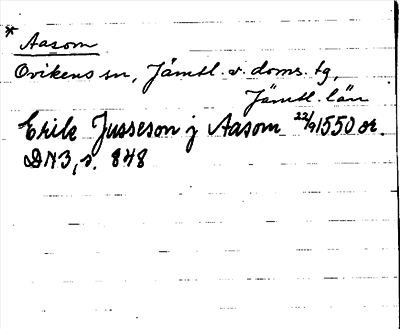 * Aasom
Ovikens sn, Jämtl. v. doms. tg,
Jämtl. län
Erik Jusseson j Aasom 22/9 1550 or.
DN 3, s. 848